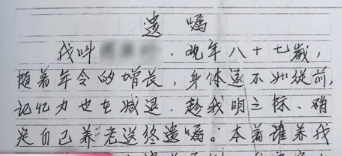 遗嘱
我叫 . 现年八十七岁,
随着年令的增长,身体远不如从前,
记忆力也在减退.趁我明之际、确
定自己养老送终遗嘱。本着谁养我